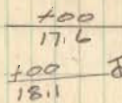 +00
17.6
+00
18.1